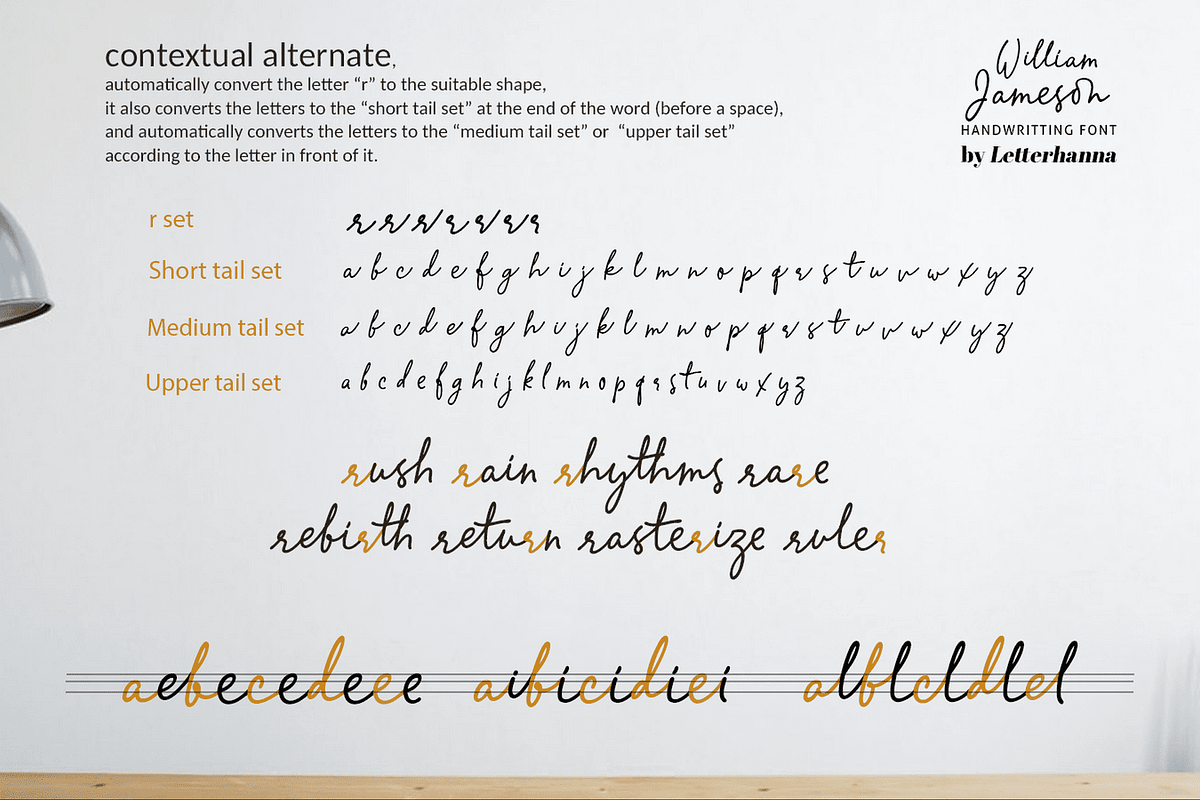 contextual alternate,
automatically convert the letter “r” to the suitable shape,
it also converts the letters to the “short tail set” at the end of the word (before a space),
and automatically converts the letters to the “medium tail set” or “upper tail set”
according to the letter in front of it.
William
Jameson
HANDWRITTING FONT
by Letterhanna
r set
rrrrrrrr
Short tail set
a b c d e f g h i j k l m n o p q r s t u v w x y z
Medium tail set
a b c d e f g h i j k l m n o p q r s t u v w x y z
Upper tail set
a b c d e f g h i j k l m n o p q r s t u v w x y z
rush rain rhythms rare
rebirth return rasterize ruler
aebecedeee aibicidiei alblcldlel